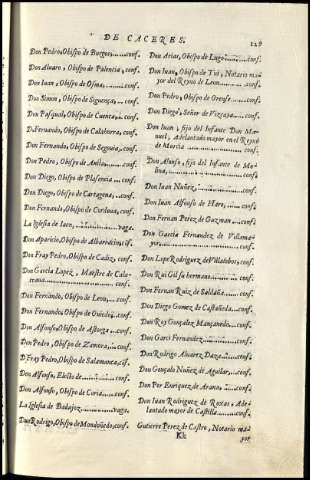 DE CACERES.
129
Don Pedro, Obispo de Burgos, ......conf.
Don Alvaro, Obispo de Palencia, .conf.
Don Iuan, Obispo de Osma, ......conf.
Don Simon, Obispo de Siguença, ...conf.
Don Pasqual, Obispo de Cuenca, ..conf.
D. Fernando, Obispo de Calahorra, conf.
Don Fernando, Obispo de Segouia, .conf.
Don Pedro, Obispo de Auila, ......conf.
Don Diego, Obispo de Plasencia ...conf.
Don Diego, Obispo de Cartagena, .conf.
Don Fernando, Obispo de Cordoua, conf.
La Iglesia de Iaen, ......vaga.
Don Aparicio, Obispo de Albarrazin, cõf.
Don Fray Pedro, Obispo de Cadiz, conf.
Don Garcia Lopez, Maestre de Cala-
......conf.
Don Fernando, Obispo de Leon, ...conf.
Don Fernando Obispo de Ouiedo, conf.
Don Alfonso, Obispo de Astorga ..conf.
Don Pedro, Obispo de Zamora, ...conf.
D. Fray Pedro, Obispo de Salamanca, cõf.
Don Alfonso, Electo de ......conf.
Don Alfonso, Obispo de Coria, ....conf.
La Iglesia de Badajoz, ......vaga.
Don Rodrigo, Obispo de Mondoñedo, conf.
Don Arias, Obispo de Lugo, ......conf.
Don Iuan, Obispo de Tui, Notario ma-
yor del Reyno de Leon ......conf.
Don Pedro, Obispo de Orense ....conf.
Don Diego, Señor de Vizcaya ....conf.
Don Iuan, fijo del Infante Don Ma-
nuel, Adelantado mayor en el Reyno
de Murcia ......conf.
Don Alonso, fijo del Infante de Mo-
lina, ......conf.
Don Iuan Nuñez, ......conf.
Don Iuan Alfonso de Haro, ......conf.
Don Fernan Perez de Guzman ...conf.
Don Garcia Fernandez de Villama-
yor, ......conf.
Don Lope Rodriguez de Villalobos, conf.
Don Rui Gil su hermano ......conf.
Don Fernan Ruiz de Saldaña ....conf.
Don Diego Gomez de Castañeda ..conf.
Don Roy Gonzalez Mançanedo ...conf.
Don Garci Fernandez ......conf.
Don Rodrigo Alvarez Daza ......conf.
Don Gonçalo Nuñez de Aguilar, ..conf.
Don Per Enriquez de Arana, .....conf.
Don Iuan Rodriguez de Roxas, Ade-
lantado mayor de Castilla ......conf.
Gutierre Perez de Castro, Notario ma-
Kk
yor